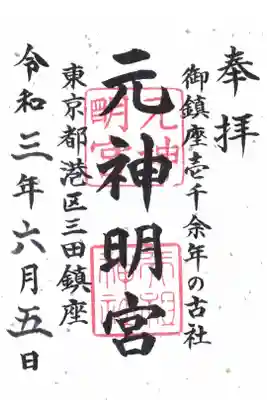 奉拝
御鎮座壱千余年の古社
元神明宮
東京都港区三田鎮座
令和三年六月五日
元神明宮